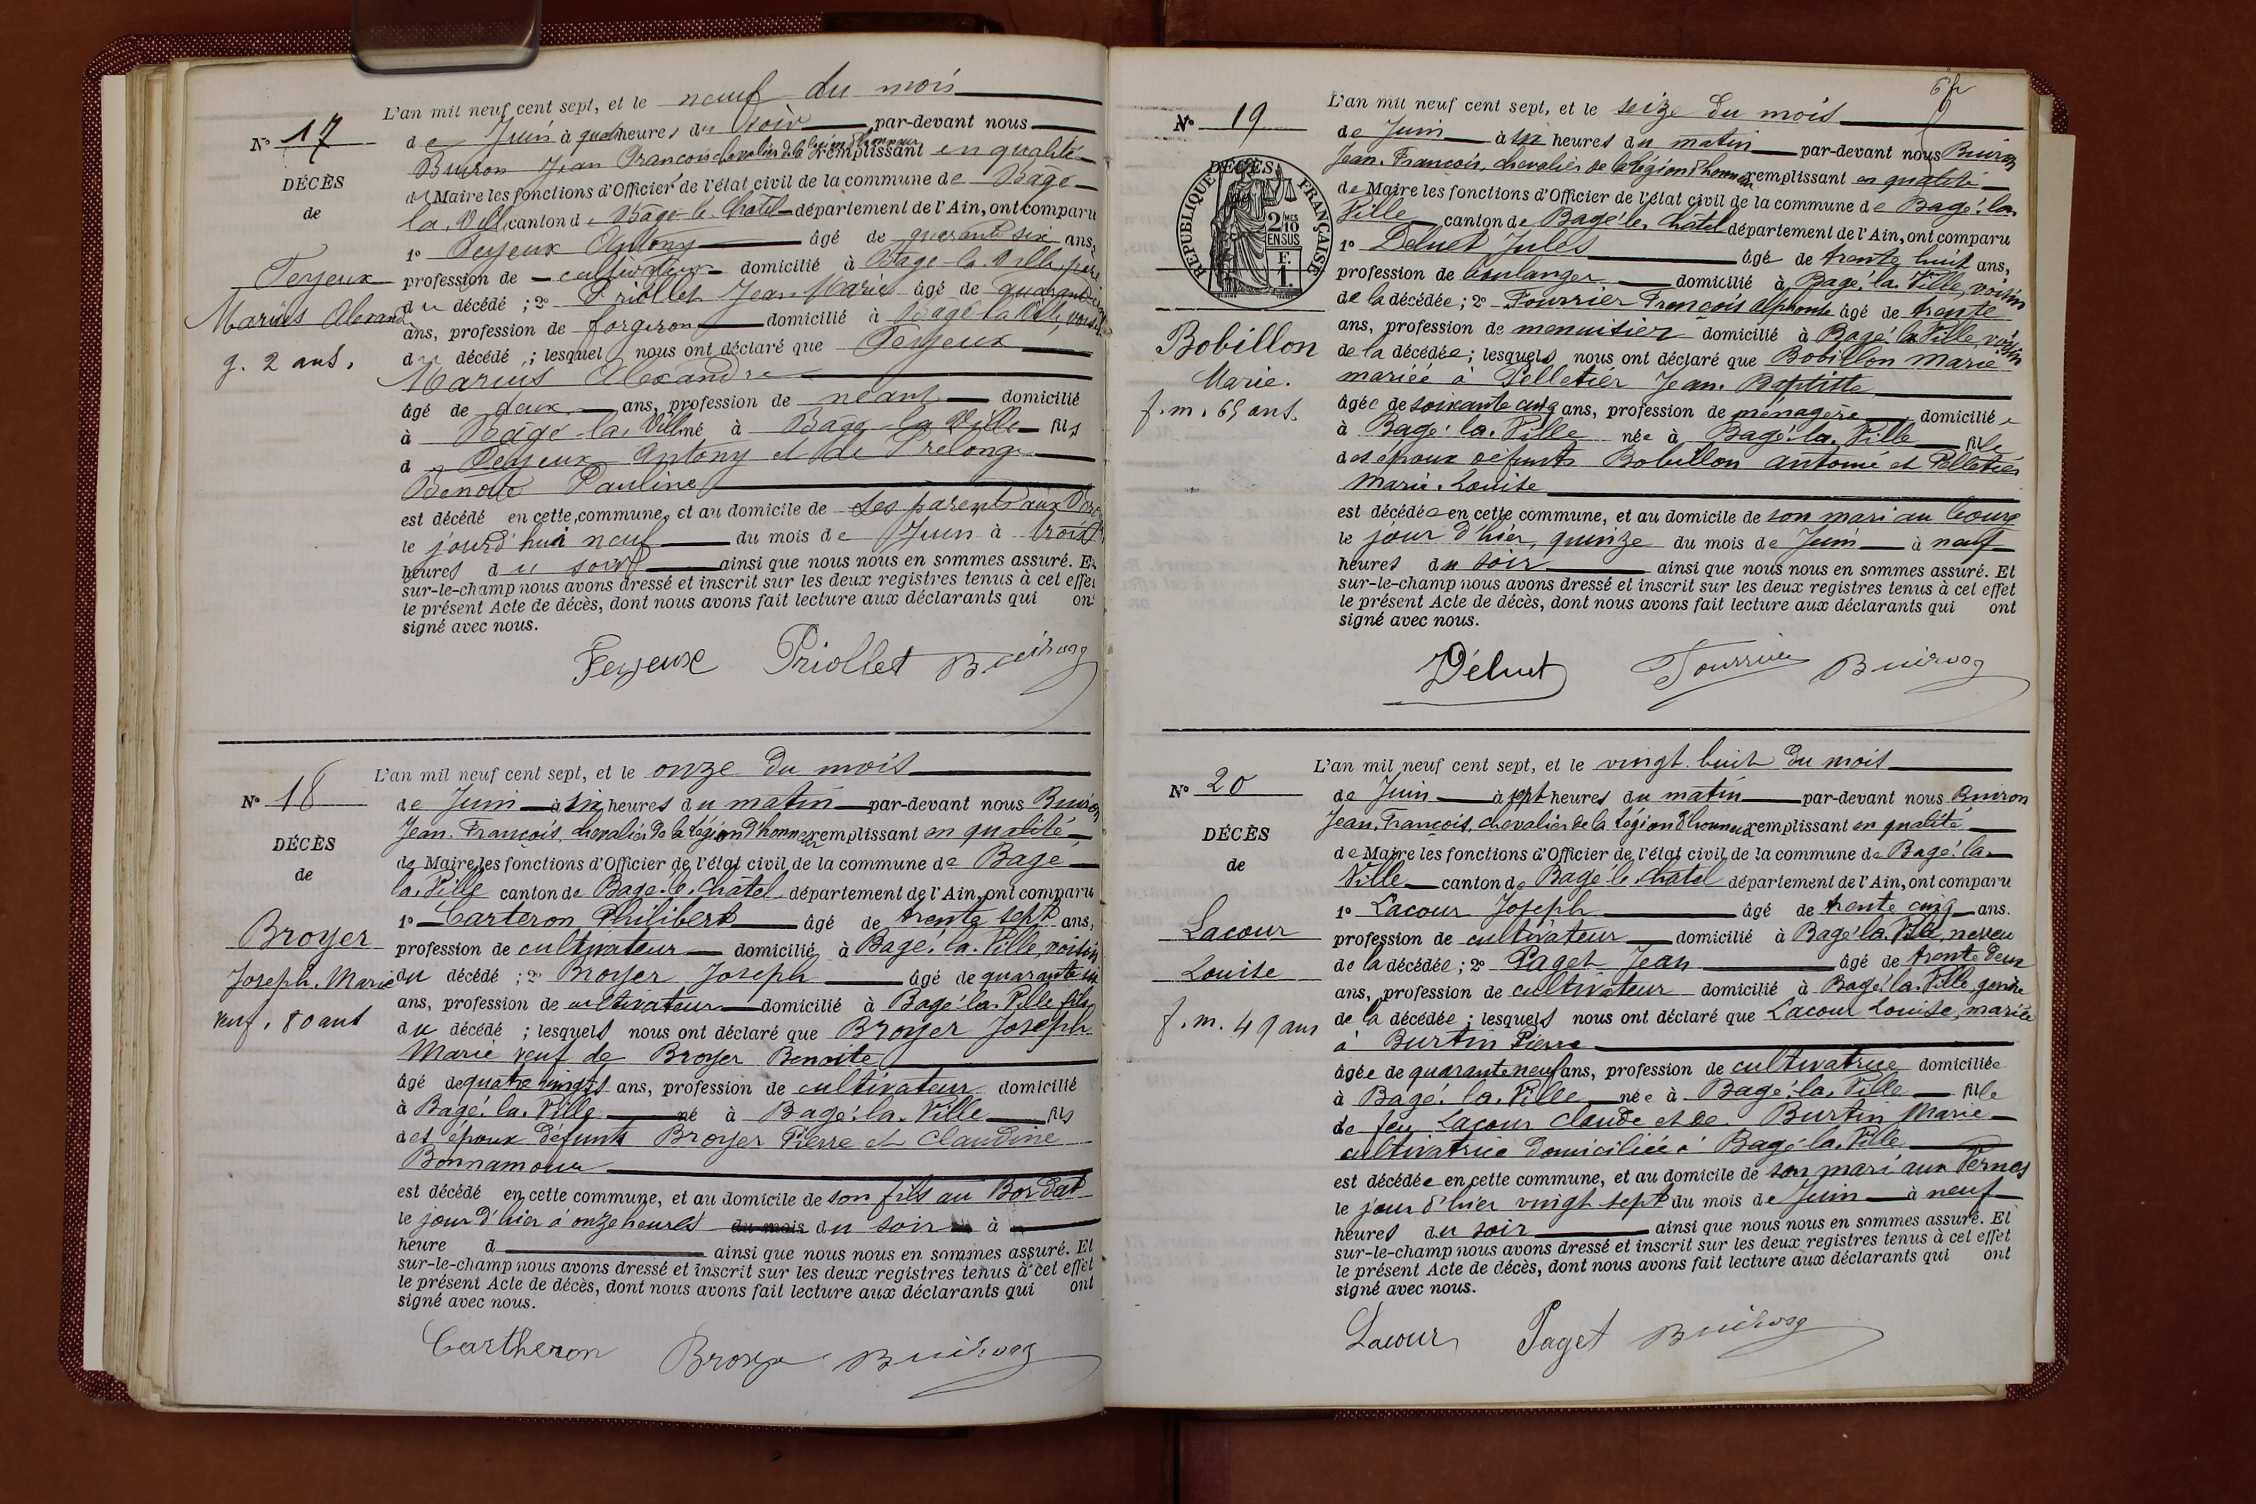 L'an mil neuf cent sept, et le neuf du mois
N° 17
de Juin à quatre heures du soir par-devant nous
Buiron Jean François chevalier de la Légion d'honneur remplissant en qualité
DÉCÈS
de Maire les fonctions d'Officier de l'état civil de la commune de Bagé
de
la Ville canton de Bâgé-le-Châtel département de l'Ain, ont comparu
1° Feyeux Antony âgé de quarante six ans,
Feyeux
profession de cultivateur domicilié à Bagé-la-Ville, père
Marius Alexandre
du décédé ; 2° Priollet Jean Marie âgé de quarante
ans, profession de forgeron domicilié à Bagé la Ville, voisin
g. 2 ans.
du décédé ; lesquels nous ont déclaré que Feyeux
Marius Alexandre
âgé de deux ans, profession de néant domicilié
à Bâgé-la-Ville né à Bâgé-la-Ville fils
de Feyeux Antony et de Prelonge
Benoite Pauline
est décédé en cette commune, et au domicile de ses parents aux
le jourd'hui neuf du mois de Juin à trois
heures du soir ainsi que nous nous en sommes assuré. Et
sur-le-champ nous avons dressé et inscrit sur les deux registres tenus à cet effet
le présent Acte de décès, dont nous avons fait lecture aux déclarants qui ont
signé avec nous.
Feyeux Priollet Buiron
L'an mil neuf cent sept, et le onze du mois
N° 18
de Juin à six heures du matin par-devant nous Buiron
Jean François, chevalier de la Légion d'honneur remplissant en qualité
DÉCÈS
de Maire les fonctions d'Officier de l'état civil de la commune de Bagé
de
la Ville canton de Bagé-le-Châtel département de l'Ain, ont comparu
1° Carteron Philibert âgé de trente sept ans,
Broyer
profession de cultivateur domicilié à Bagé-la-Ville, voisin
Joseph. Marie
du décédé ; 2° Broyer Joseph âgé de quarante six
ans, profession de cultivateur domicilié à Bagé-la-Ville fils
veuf, 80 ans
du décédé ; lesquels nous ont déclaré que Broyer Joseph
Marie veuf de Broyer Benoite
âgé de quatre vingts ans, profession de cultivateur domicilié
à Bagé-la-Ville né à Bagé-la-Ville fils
des époux défunts Broyer Pierre et Claudine
Bonnamour
est décédé en cette commune, et au domicile de son fils au Bordat
le jour d'hier à onze heures du mois du soir à
heure d ainsi que nous nous en sommes assuré. Et
sur-le-champ nous avons dressé et inscrit sur les deux registres tenus à cet effet
le présent Acte de décès, dont nous avons fait lecture aux déclarants qui ont
signé avec nous.
Cartheron Broyer Buiron
6
L'an mil neuf cent sept, et le seize du mois
N° 19
de Juin à six heures du matin par-devant nous Buiron
Jean. François, chevalier de la Légion d'honneur remplissant en qualité
DÉCÈS
RÉPUBLIQUE FRANÇAISE
2 MES 10 EN SUS
1 F.
de Maire les fonctions d'Officier de l'état civil de la commune de Bagé-la-
Ville canton de Bagé-le-Châtel département de l'Ain, ont comparu
1° Deluet Jules âgé de trente huit ans,
profession de boulanger domicilié à Bagé-la-Ville, voisin
de la décédée ; 2° Fourrier François Alphonse âgé de trente
ans, profession de menuisier domicilié à Bagé la Ville, voisin
Bobillon
de la décédée ; lesquels nous ont déclaré que Bobillon Marie
Marie.
mariée à Pelletier Jean. Baptiste
f. m. 65 ans.
âgée de soixante cinq ans, profession de ménagère domiciliée
à Bagé-la-Ville née à Bagé-la-Ville fille
des époux défunts Bobillon Antoine et Pelletier
Marie. Louise
est décédée en cette commune, et au domicile de son mari au bourg
le jour d'hier, quinze du mois de Juin à neuf
heures du soir ainsi que nous nous en sommes assuré. Et
sur-le-champ nous avons dressé et inscrit sur les deux registres tenus à cet effet
le présent Acte de décès, dont nous avons fait lecture aux déclarants qui ont
signé avec nous.
Déluet Fourrier Buiron
L'an mil neuf cent sept, et le vingt huit du mois
N° 20
de Juin à sept heures du matin par-devant nous Buiron
Jean. François, chevalier de la Légion d'honneur remplissant en qualité
DÉCÈS
de Maire les fonctions d'Officier de l'état civil de la commune de Bagé-la-
de
Ville canton de Bagé-le-Châtel département de l'Ain, ont comparu
1° Lacour Joseph âgé de trente cinq ans.
Lacour
profession de cultivateur domicilié à Bagé-la-Ville, neveu
Louise
de la décédée ; 2° Paget Jean âgé de trente deux
ans, profession de cultivateur domicilié à Bagé-la-Ville, gendre
f. m. 49 ans
de la décédée ; lesquels nous ont déclaré que Lacour Louise, mariée
à Burtin Pierre
âgée de quarante neuf ans, profession de cultivatrice domiciliée
à Bagé-la-Ville née à Bagé-la-Ville fille
de feu Lacour Claude et de Burtin Marie
cultivatrice domiciliée à Bagé-la-Ville
est décédée en cette commune, et au domicile de son mari aux Pernes
le jour d'hier vingt sept du mois de Juin à neuf
heures du soir ainsi que nous nous en sommes assuré. Et
sur-le-champ nous avons dressé et inscrit sur les deux registres tenus à cet effet
le présent Acte de décès, dont nous avons fait lecture aux déclarants qui ont
signé avec nous.
Lacour Paget Buiron